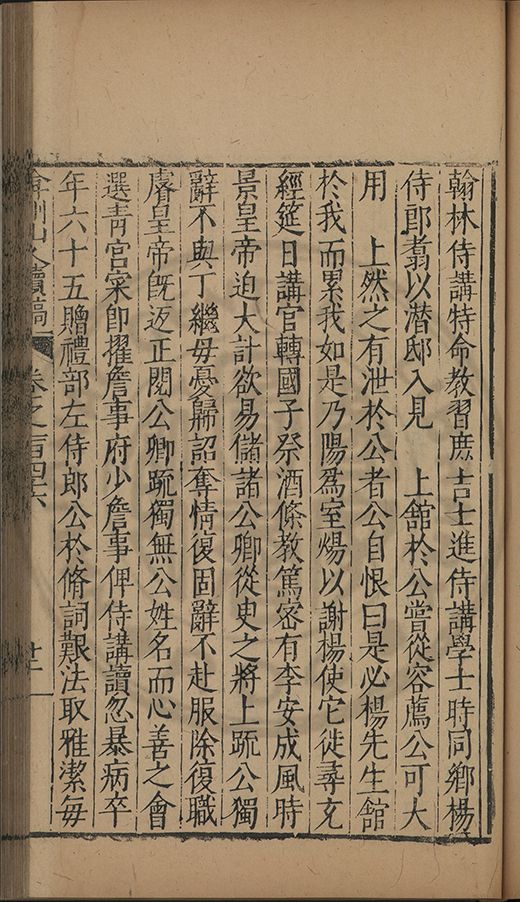 翰林侍講特命教習庶吉士進侍講學士時同鄉楊
侍郎翥以潛邸入見　上舘於公嘗從容薦公可大
用　上然之有泄於公者公自恨曰是必楊先生舘
於我而累我如是乃陽爲室煬以謝楊使它徙尋充
經筵日講官轉國子祭酒條教篤密有李安成風時
景皇帝迫大計欲易儲諸公卿從臾之將上疏公獨
辭不與丁繼毋憂歸詔奪情復固辭不赴服除復職
睿皇帝旣返正閱公卿疏獨無公姓名而心善之會
選青宮寀卽擢詹事府少詹事俾侍講讀忽暴病卒
年六十五贈禮部左侍郎公於脩詞艱法取雅潔每
弇州山人續稿　卷之一百四十六　廿二